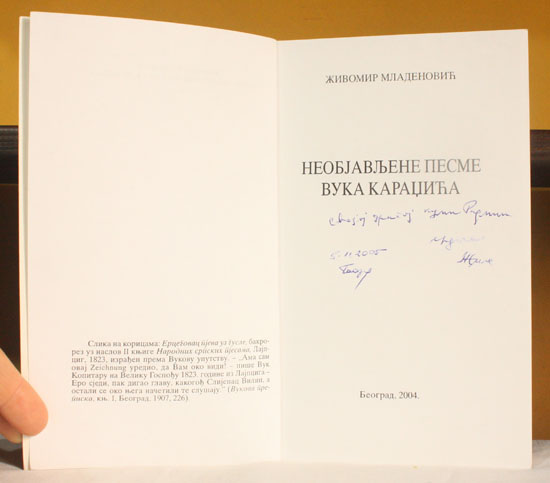 Слика на корицама: Ерцеговац пјева уз гусле, бакро-
рез уз наслов II књиге Народних српских пјесама, Лајп-
циг, 1823, израђен према Вукову упутству. – „Ама сам
овај Zeichnung уредно, да Вам око види! – пише Вук
Копитару на Велику Госпођу 1823. године из Лајпцига –
Еро сједи, пак дигао главу, каkогођ Слијепац Вилип, а
остали се око њега начетили те слушају.” (Вукова пре-
писка, књ. I, Београд, 1907, 226).
ЖИВОМИР МЛАДЕНОВИЋ
НЕОБЈАВЉЕНЕ ПЕСМЕ
ВУКА КАРАЏИЋА
својој драгој
5.11.2005
Београд, 2004.